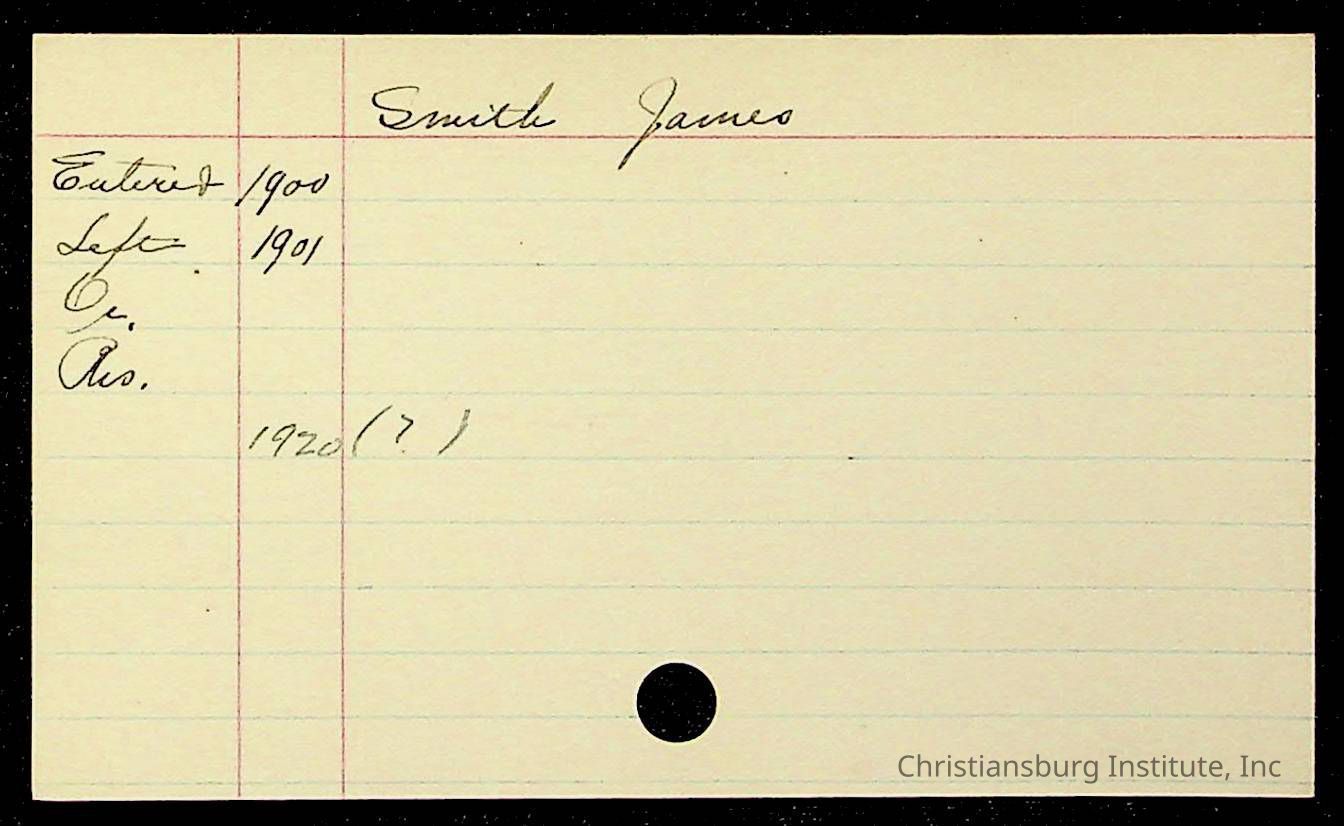 Smith James
Entered 1900
Left 1901
Oc.
Res.
1920 (?)
Christiansburg Institute, Inc